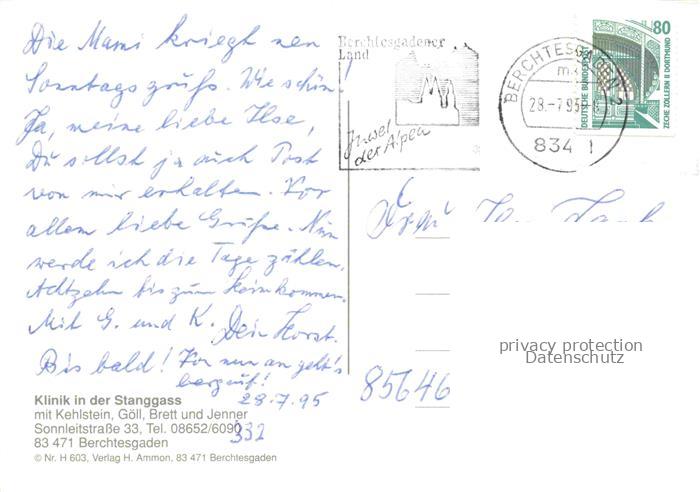 Die Mami kriegt nen
Sonntagsgruß. Wie schön!
Ja, meine liebe Ilse,
Du sollst ja auch Post
von mir erhalten. Vor
allem liebe Grüße. Nun
werde ich die Tage zählen.
Achtzehn bis zum Heimkommen.
Mit G. und K. Dein Horst.
Bis bald! Von nun an geht's
bergauf!
28.7.95
Klinik in der Stanggass
mit Kehlstein, Göll, Brett und Jenner
Sonnleitstraße 33, Tel. 08652/6090
332
83 471 Berchtesgaden
© Nr. H 603, Verlag H. Ammon, 83 471 Berchtesgaden
Berchtesgadener
Land
Insel
der Alpen
BERCHTESGADEN 2
28.-7.95
834 1
80
DEUTSCHE BUNDESPOST
ZECHE ZOLLERN II DORTMUND
Frau
privacy protection
Datenschutz
85646